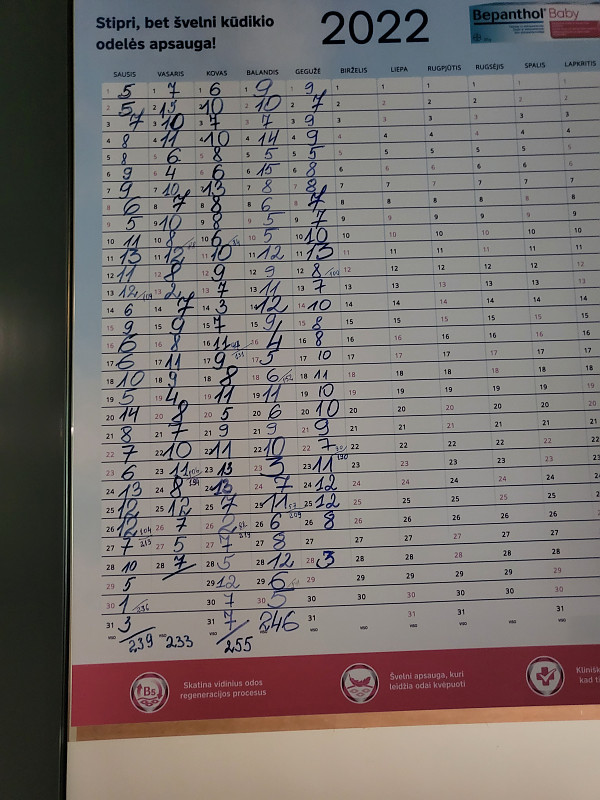 Stipri, bet švelni kūdikio
odelės apsauga!
2022
Bepanthol Baby
SAUSIS VASARIS KOVAS BALANDIS GEGUŽĖ BIRŽELIS LIEPA RUGPJŪTIS RUGSĖJIS SPALIS LAPKRITIS
1 5 1 7 1 6 1 9 1 9 1 1 1 1 1 1
2 5 2 13 2 10 2 10 2 7 2 2 2 2 2 2
3 7 3 10 3 7 3 7 3 9 3 3 3 3 3 3
4 8 4 11 4 10 4 14 4 9 4 4 4 4 4 4
5 8 5 6 5 8 5 5 5 5 5 5 5 5 5 5
6 9 6 4 6 6 6 15 6 8 6 6 6 6 6 6
7 9 7 10 7 13 7 8 7 8 7 7 7 7 7 7
8 6 8 7 8 8 8 6 8 7 8 8 8 8 8 8
9 5 9 10 9 8 9 5 9 7 9 9 9 9 9 9
10 11 10 8 10 6 10 5 10 10 10 10 10 10 10 10
11 13 11 12 11 10 11 12 11 13 11 11 11 11 11 11
12 11 12 8 12 9 12 9 12 8 12 12 12 12 12 12
13 12 13 2 13 7 13 11 13 7 13 13 13 13 13 13
14 6 14 7 14 3 14 12 14 10 14 14 14 14 14 14
15 9 15 9 15 7 15 9 15 8 15 15 15 15 15 15
16 6 16 8 16 11 16 4 16 8 16 16 16 16 16 16
17 6 17 11 17 9 17 5 17 10 17 17 17 17 17 17
18 10 18 9 18 8 18 6 18 11 18 18 18 18 18 18
19 5 19 4 19 11 19 11 19 10 19 19 19 19 19 19
20 14 20 8 20 5 20 6 20 10 20 20 20 20 20 20
21 8 21 7 21 9 21 9 21 9 21 21 21 21 21 21
22 7 22 10 22 11 22 10 22 7 22 22 22 22 22 22
23 6 23 11 23 13 23 3 23 11 190 23 23 23 23 23 23
24 13 24 8 194 24 13 24 7 24 12 24 24 24 24 24 24
25 12 25 12 25 7 25 11 25 12 25 25 25 25 25 25
26 12 104 26 7 26 2 26 6 209 26 8 26 26 26 26 26 26
27 7 215 27 5 27 7 219 27 8 27 27 27 27 27 27 27
28 10 28 7 28 5 28 12 28 3 28 28 28 28 28 28
29 5 29 12 29 6 29 29 29 29 29 29 29
30 1 236 30 7 30 5 30 30 30 30 30 30 30
31 3 31 7 31 31 31 31
VISO 239 VISO 233 VISO 255 VISO 246 VISO VISO VISO VISO VISO VISO VISO
Bs
Skatina vidinius odos
regeneracijos procesus
Švelni apsauga, kuri
leidžia odai kvėpuoti